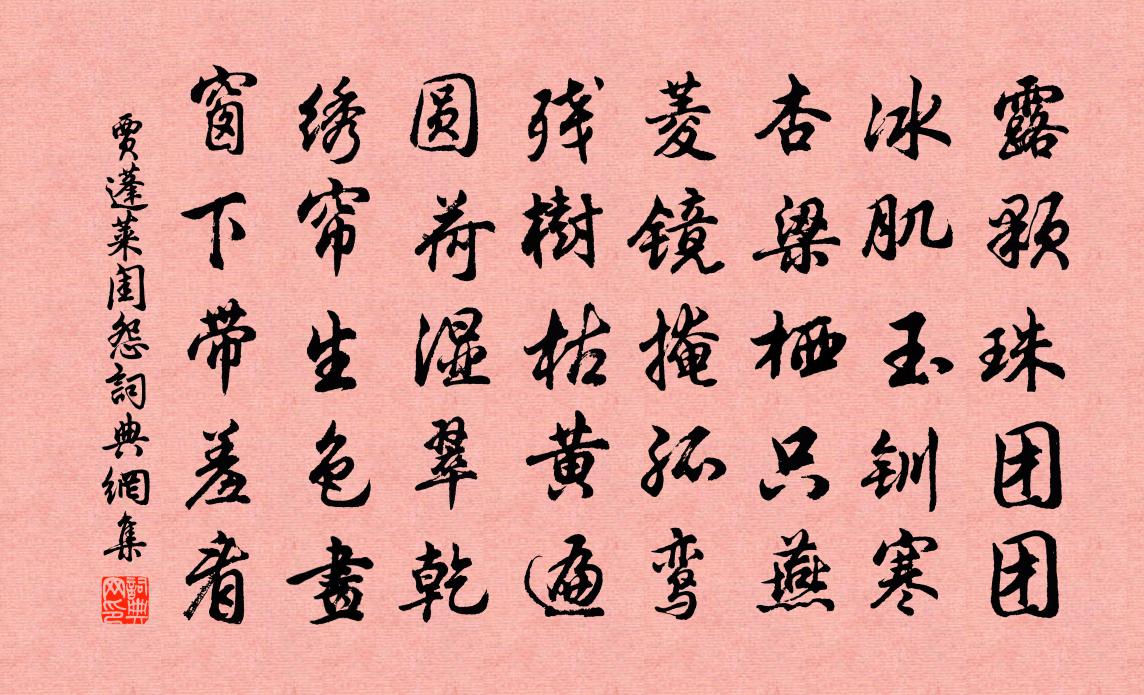 露颗珠团团
冰肌玉钏寒
杏梁栖只燕
菱镜掩孤鸾
残樹枯黄遍
圆荷湿翠乾
绣帘生色畫
窗下带羞看
贾蓬莱闺怨詞典網集
詞典网印